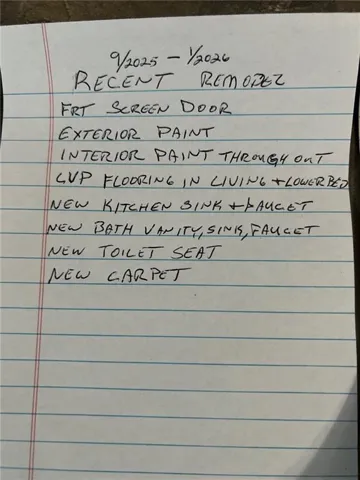 9/2025 - 1/2026
RECENT REMODEL
FRT SCREEN DOOR
EXTERIOR PAINT
INTERIOR PAINT THROUGH OUT
LVP FLOORING IN LIVING + LOWER BED
NEW KITCHEN SINK + FAUCET
NEW BATH VANITY, SINK, FAUCET
NEW TOILET SEAT
NEW CARPET